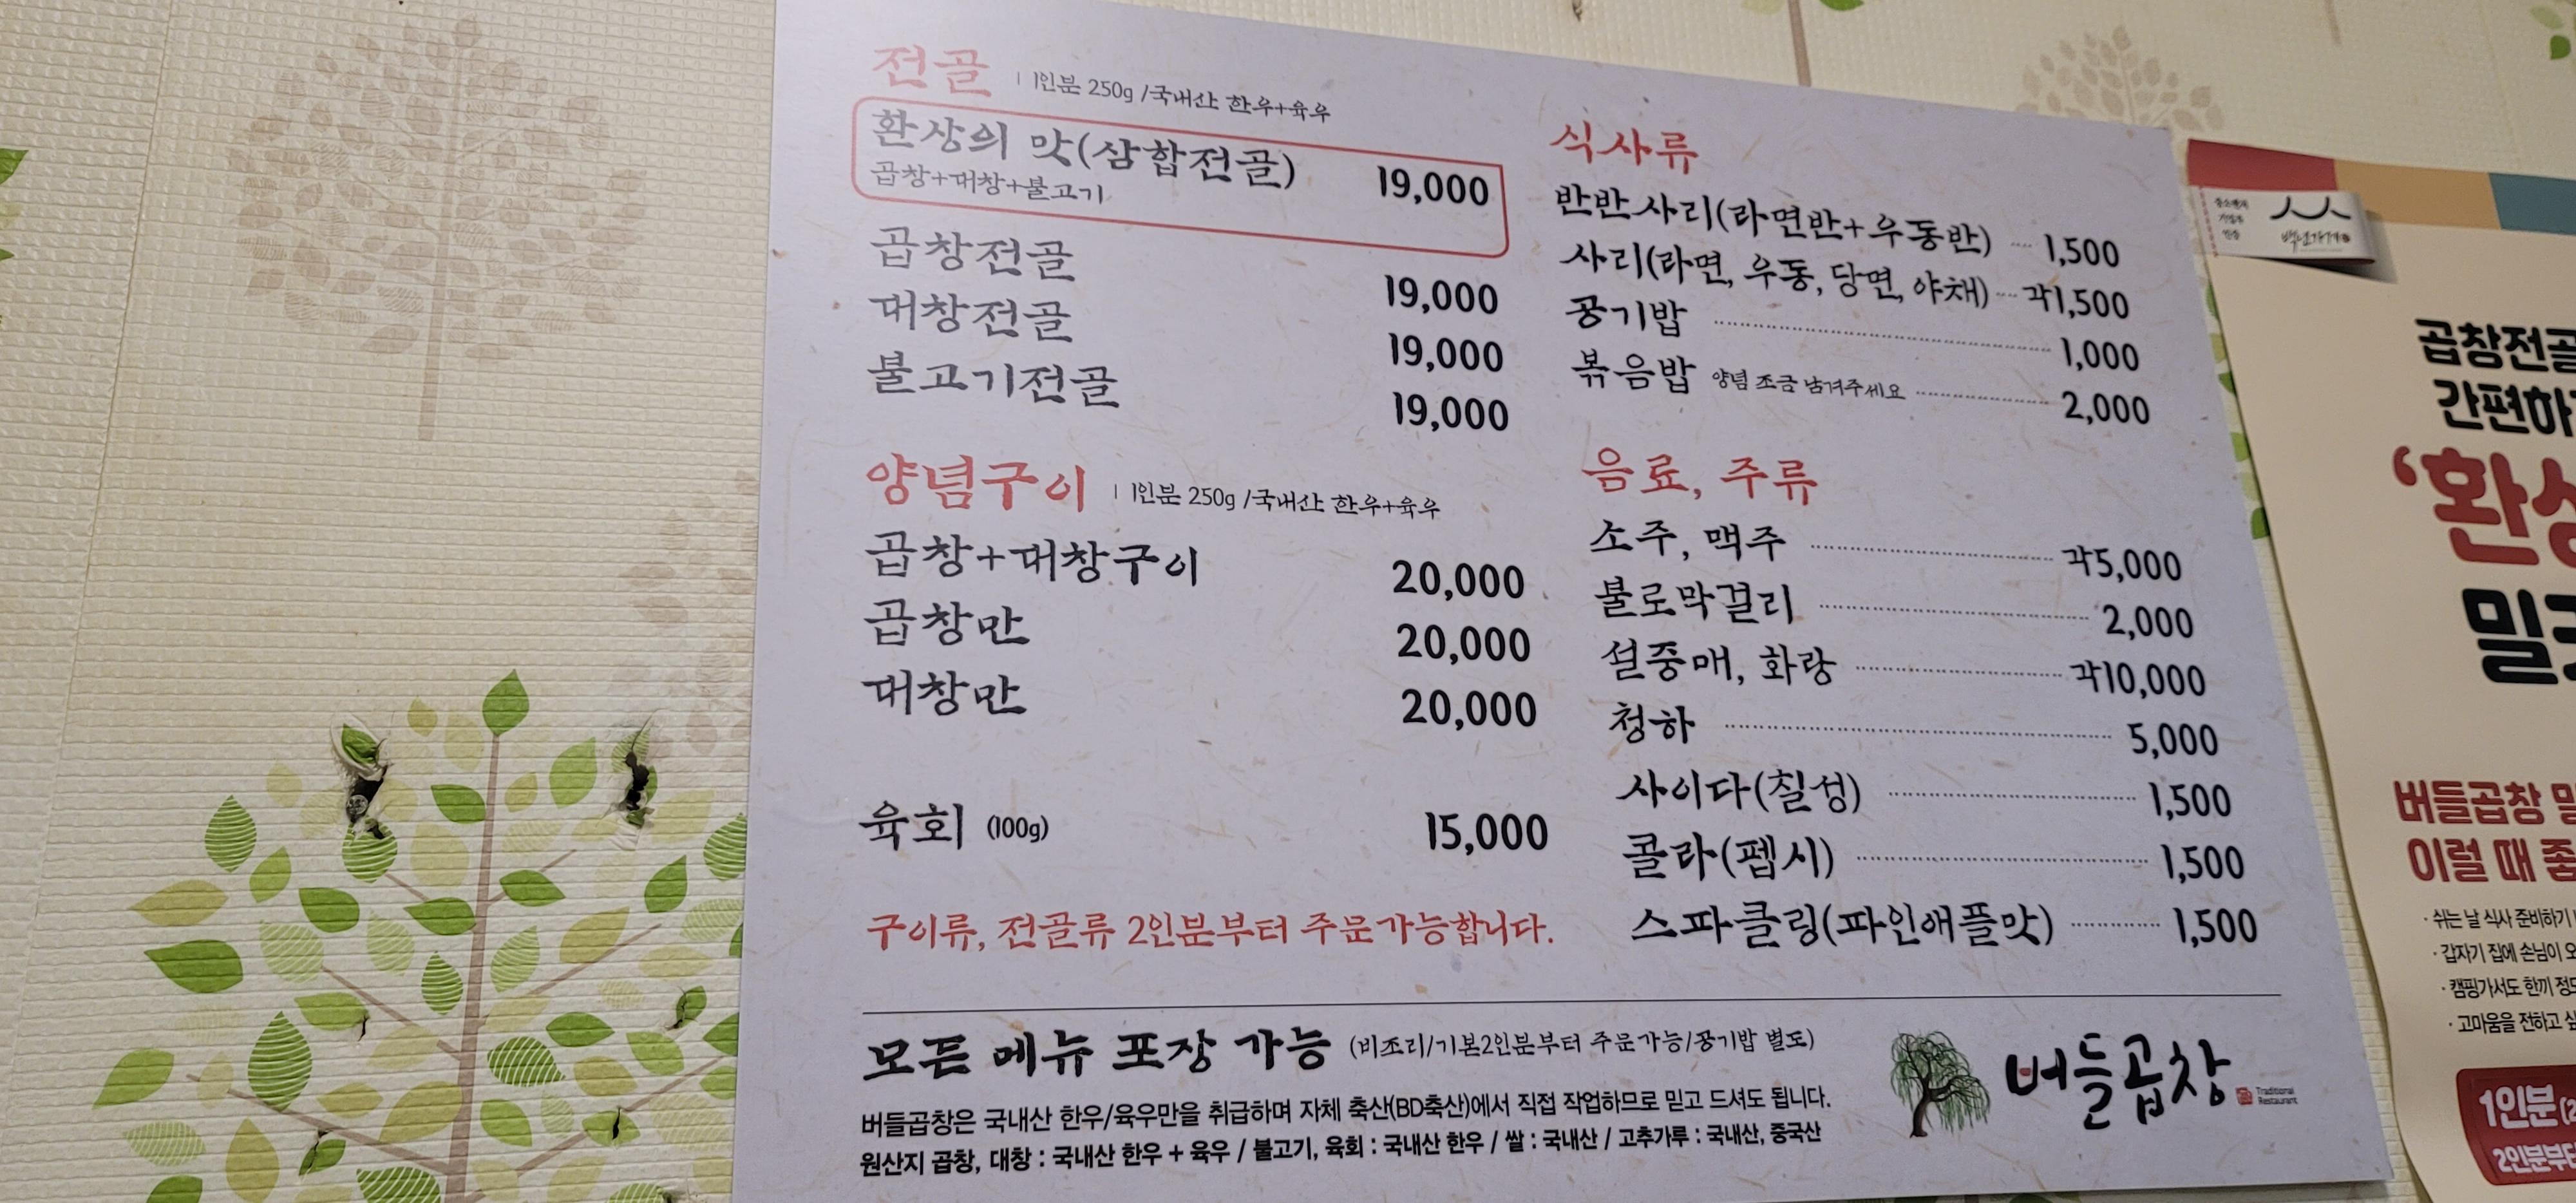 전골 | 1인분 250g /국내산 한우+육우
환상의 맛(삼합전골) 19,000
곱창+대창+불고기
곱창전골 19,000
대창전골 19,000
불고기전골 19,000
양념구이 | 1인분 250g /국내산 한우+육우
곱창+대창구이 20,000
곱창만 20,000
대창만 20,000
육회 (100g) 15,000
구이류, 전골류 2인분부터 주문가능합니다.
식사류
반반사리(라면반+우동반) 1,500
사리(라면, 우동, 당면, 야채) 각1,500
공기밥 1,000
볶음밥 양념 조금 남겨주세요 2,000
음료, 주류
소주, 맥주 각5,000
불로막걸리 2,000
설중매, 화랑 각10,000
청하 5,000
사이다(칠성) 1,500
콜라(펩시) 1,500
스파클링(파인애플맛) 1,500
모든 메뉴 포장 가능 (비조리/기본2인분부터 주문가능/공기밥 별도)
버들곱창은 국내산 한우/육우만을 취급하며 자체 축산(BD축산)에서 직접 작업하므로 믿고 드셔도 됩니다.
원산지 곱창, 대창 : 국내산 한우 + 육우 / 불고기, 육회 : 국내산 한우 / 쌀 : 국내산 / 고추가루 : 국내산, 중국산
버들곱창
Traditional
Restaurant
백년가게
곱창전골
간편하
'환상
버들곱창
이럴 때
· 쉬는 날 식사 준비하기
· 갑자기 집에 손님이
· 캠핑가서도 한끼
· 고마움을 전하고
1인분
2인분부터